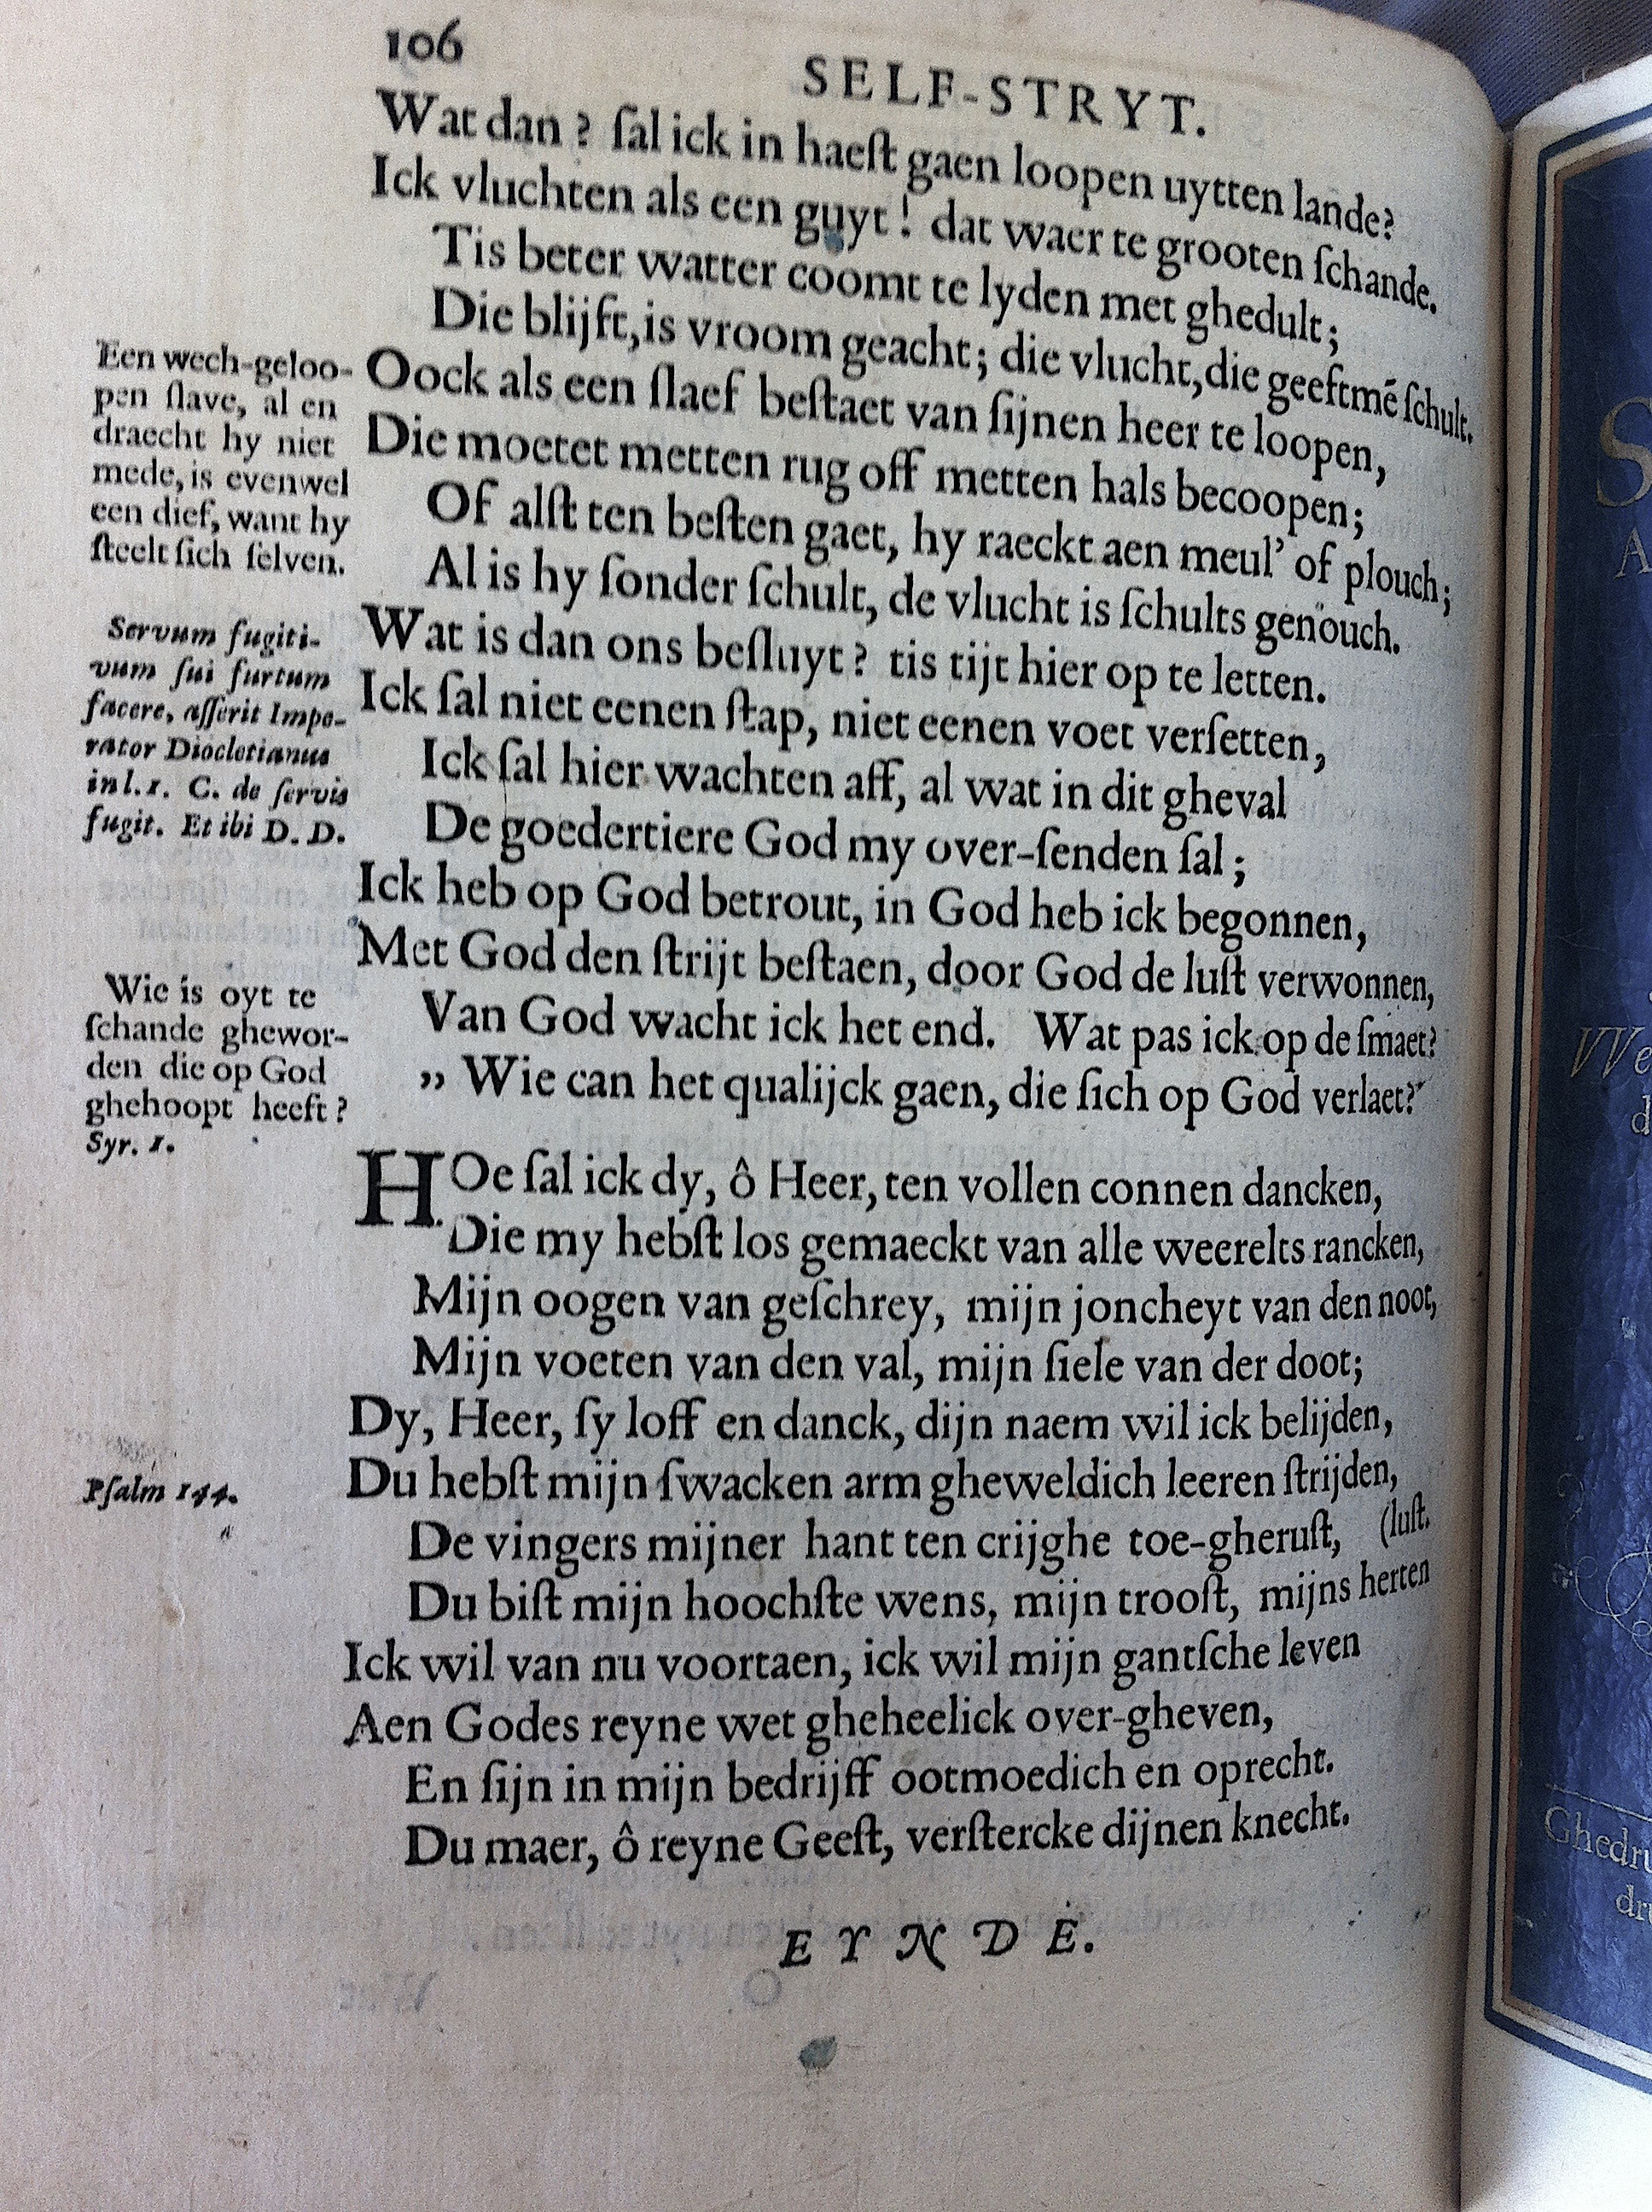 106
SELF-STRYT.
Wat dan? ſal ick in haeſt gaen loopen uytten lande?
Ick vluchten als een guyt! dat waer te grooten ſchande.
Tis beter watter coomt te lyden met ghedult;
Die blijft, is vroom geacht; die vlucht, die geeftmē ſchult.
Oock als een ſlaef beſtaet van ſijnen heer te loopen,
Die moetet metten rug off metten hals becoopen;
Of alſt ten beſten gaet, hy raeckt aen meul' of plouch;
Al is hy ſonder ſchult, de vlucht is ſchults genouch.
Wat is dan ons beſluyt? tis tijt hier op te letten.
Ick ſal niet eenen ſtap, niet eenen voet verſetten,
Ick ſal hier wachten aff, al wat in dit gheval
De goedertiere God my over-ſenden ſal;
Ick heb op God betrout, in God heb ick begonnen,
Met God den ſtrijt beſtaen, door God de luſt verwonnen,
Van God wacht ick het end. Wat pas ick op de ſmaet?
„ Wie can het qualijck gaen, die ſich op God verlaet?
HOe ſal ick dy, ô Heer, ten vollen connen dancken,
Die my hebſt los gemaeckt van alle weerelts rancken,
Mijn oogen van geſchrey, mijn joncheyt van den noot,
Mijn voeten van den val, mijn ſiele van der doot;
Dy, Heer, ſy loff en danck, dijn naem wil ick belijden,
Du hebſt mijn ſwacken arm gheweldich leeren ſtrijden,
De vingers mijner hant ten crijghe toe-gheruſt, (luſt.
Du biſt mijn hoochſte wens, mijn trooſt, mijns herten
Ick wil van nu voortaen, ick wil mijn gantſche leven
Aen Godes reyne wet gheheelick over-gheven,
En ſijn in mijn bedrijff ootmoedich en oprecht.
Du maer, ô reyne Geeſt, verſtercke dijnen knecht.
EYNDE.
Een wech-geloo-
pen ſlave, al en
draecht hy niet
mede, is evenwel
een dief, want hy
ſteelt ſich ſelven.
Servum fugiti-
vum ſui furtum
facere, aſſerit Impe-
rator Diocletianus
in l. 1. C. de ſervis
fugit. Et ibi D. D.
Wie is oyt te
ſchande ghewor-
den die op God
ghehoopt heeft?
Syr. 1.
Pſalm 144.
S
A
Ghedru